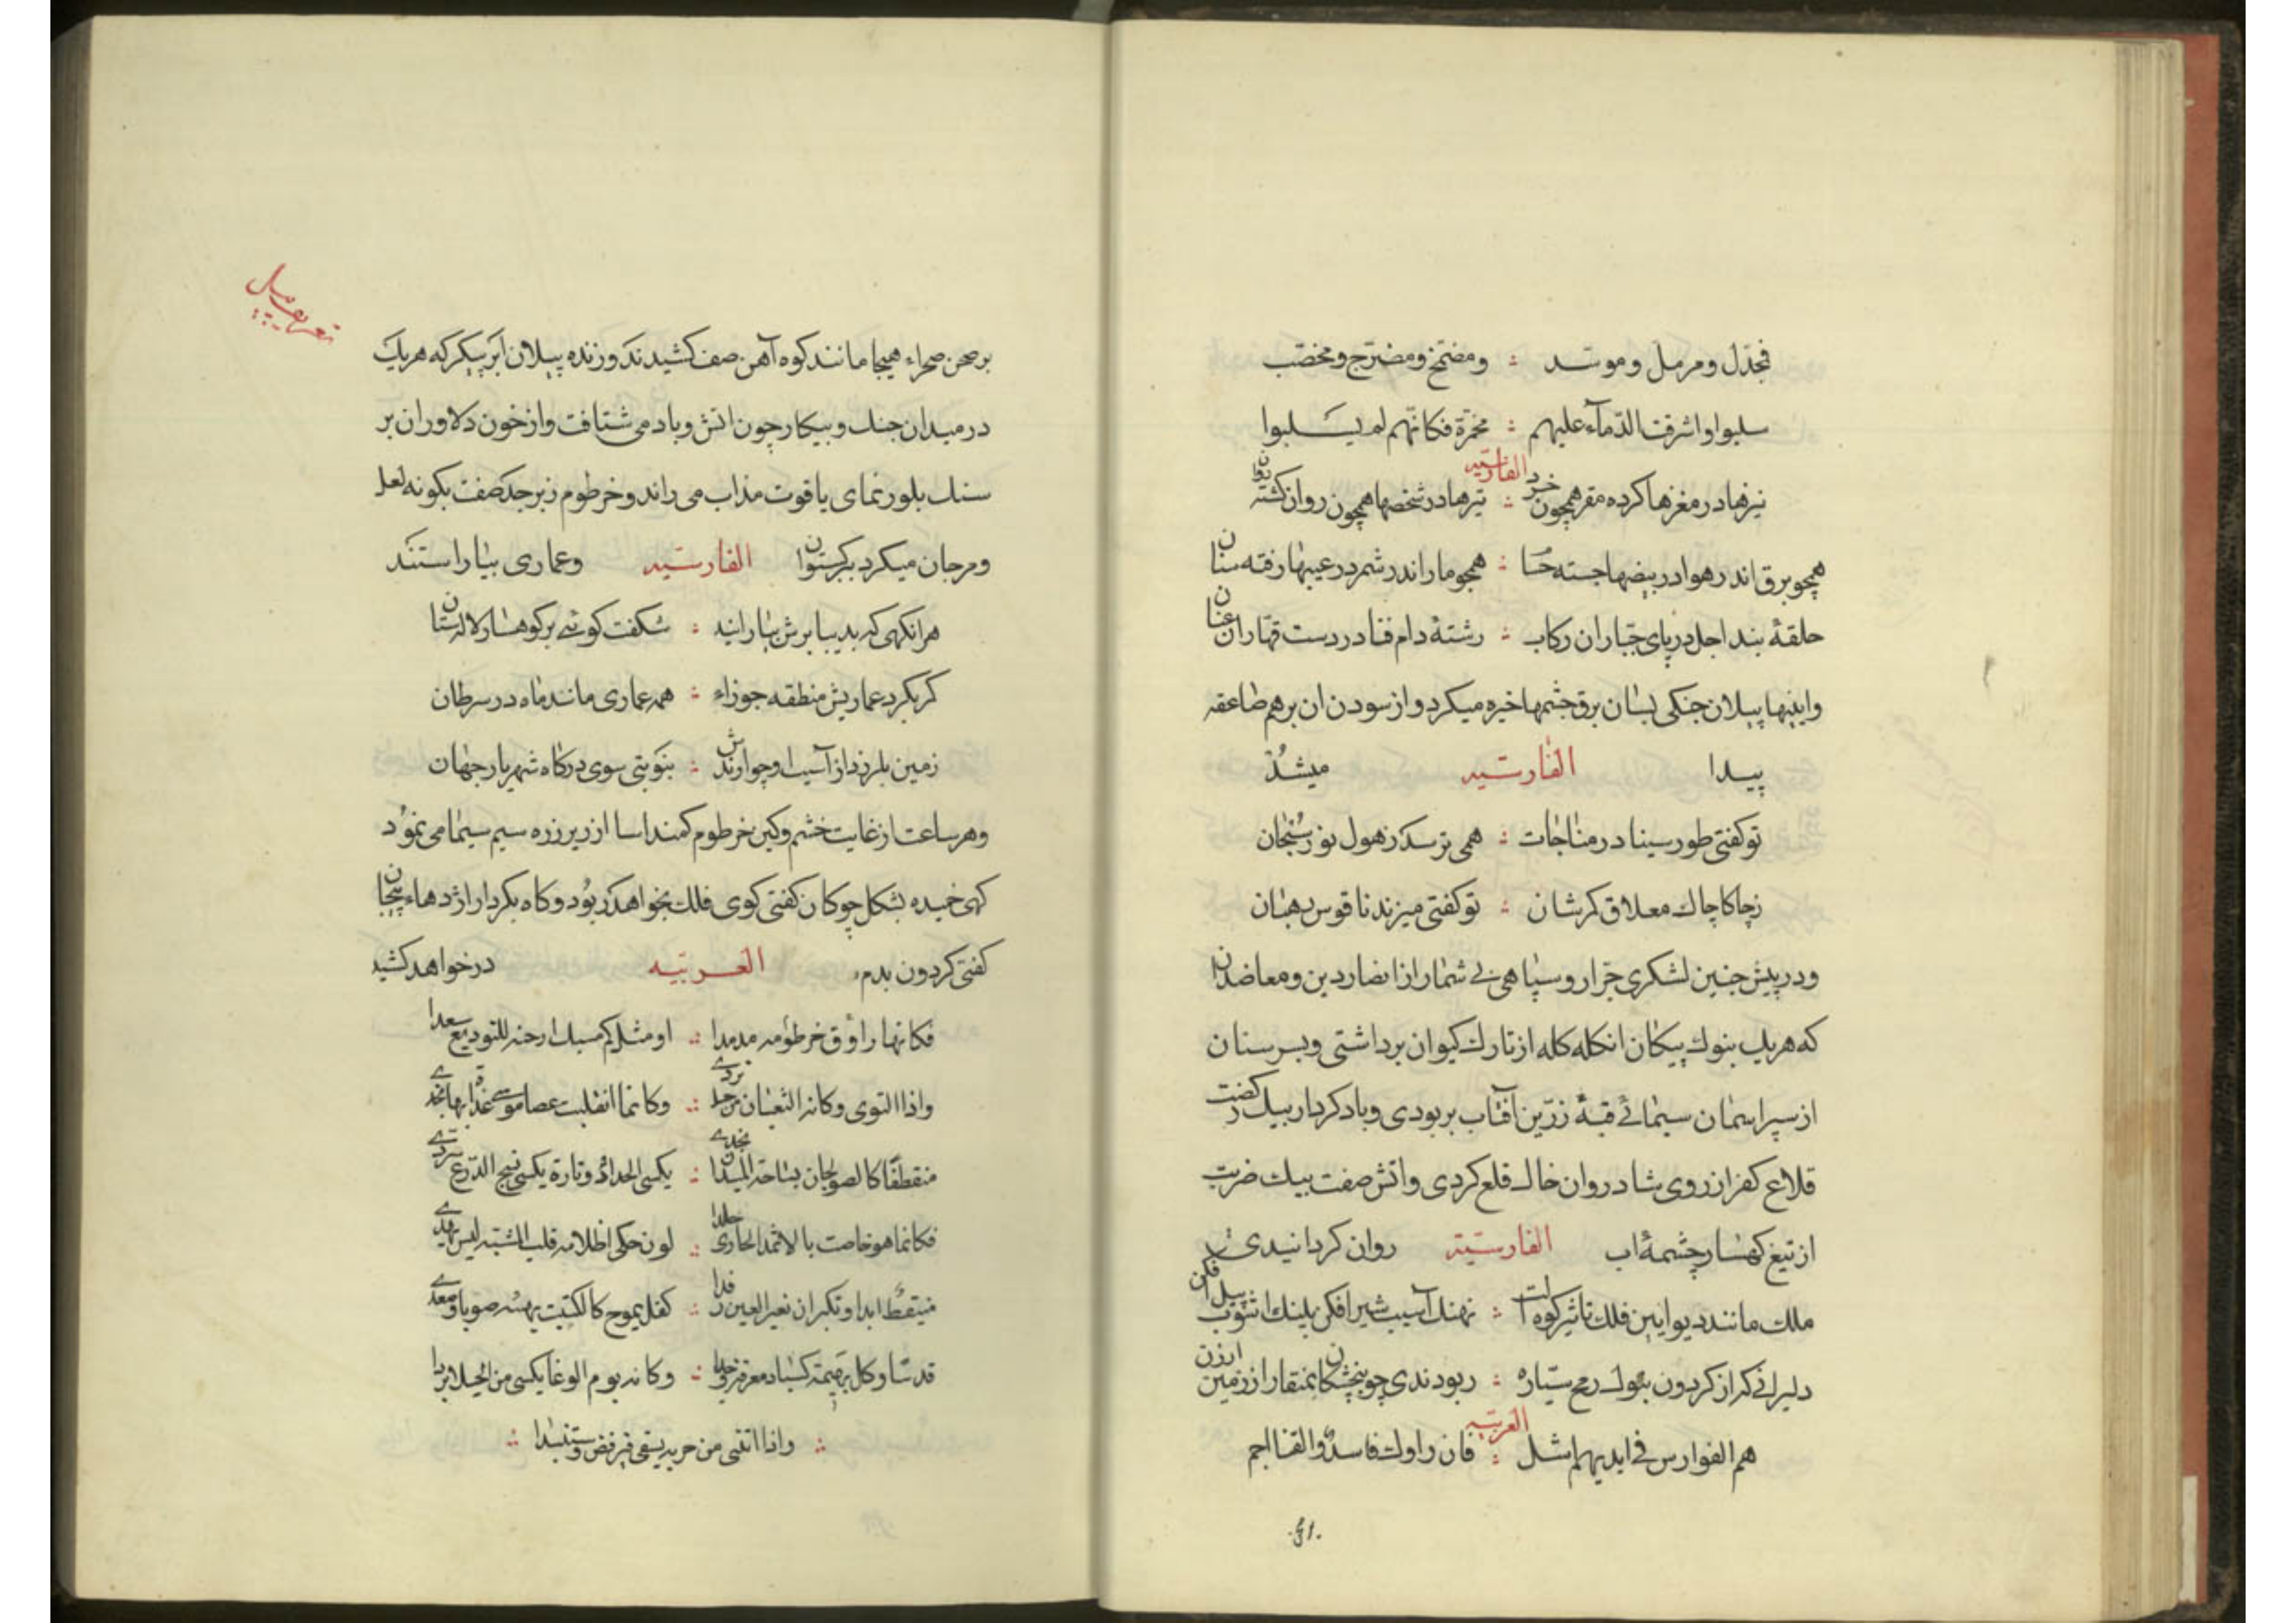 فمجدّل ومرمل وموسّد ؞ ومضمّخ ومضرّج ومخضّب
سلبوا واشرقت الدّمآء علیهم ؞ محمرّة فکانّهم لم یسلبوا
الفارسیّه
نیزها در مغزها کرده مقر همچون خرد ؞ تیرها در شخصها همچون روان کشته روان
همچو برق اندر هوا در بیضها جسته حسا ؞ همچو مار اندر شمر در عیبها رفته سنان
حلقهٔ بند اجل در پای جبّاران رکاب ؞ رشتهٔ دام فنا در دست قهّاران عنان
واینها پیلان جنکی بسان برق چشمها خیره میکرد و از سودن ان برهم صاعقه
پیدا الفارسیّه میشد
تو کفتی طور سینا در مناجات ؞ همی ترسد ز هول نور سبحان
ز چاکاچاک معلاق کرشان ؞ تو کفتی میزند ناقوس رهبان
ودر پیش چنین لشکری جرّار و سپاهی بی شمار از انصار دین و معاضدان
که هریک بنوک پیکان انکله کله از تارک کیوان برداشتی وبسر سنان
از سپر اسمان سیمائی قبهٔ زرّین آفتاب بربودی وباد کردار بیک رکضت
قلاع کفر از روی شادروان خاک قلع کردی واتش صفت بیک ضربت
از تیغ کهسار چشمهٔ اب الفارسیّة روان کردانیدی
ملک مانند دیو ایین فلک تاثیر کوه ات ؞ نهنک آسیب شیر افکن پلنک اشوب پیل افکن
دلیرانی که از کردون بنوک رمح سیّاره ؞ ربودندی چو بنجشکان بمنقار از زمین ارزن
العربیّه
هم الفوارس فی ایدیهم اسل ؞ فان راوک فاسد والقنا اجم
.31.
تعریف پیل
بر صحن صحراء هیجا مانند کوه آهن صف کشیدند و زنده پیلان ابر پیکر که هریک
در میدان جنک و پیکار چون اتش وباد می شتافت واز خون دلاوران بر
سنک بلور نمای یاقوت مذاب می راند وخرطوم زبرجد صفت بکونه لعل
ومرجان میکرد برکستوان الفارسیّه وعماری بیاراستند
هر انکهی که بدیبا برش بیارایند ؞ شکفت کوئی بر کوهسار لالستان
کر بکرد عماریش منطقه جوزاء ؞ همه عماری مانند ماه در سرطان
زمین بلرزد از آسیب او چو ارندش ؞ بنوبتی سوی درکاه شهریار جهان
وهر ساعت از غایت خشم وکین خرطوم کمند اسا از زیر زره سیم سیما می نمود
کهی خمیده بشکل چوکان کفتی کوی فلک بخواهد ربود وکاه بکردار اژدهاء پیجان
کفتی کردون بدم العربیّه در خواهد کشید
فکانها راووق خرطومه مدمدا ؞ او مثل کم مسبل ارخته للتودیع سعدا
واذا التوی وکانه الثعبان من جلد تردی ؞ وکانما انقلبت عصا موسی غذابها تحدی
منقطفا کالصولجان بساحة المیدان یحدی ؞ یکسی الحداد وتارة یکسی نسج الدرع سردی
فکانما هو خاصت بالاثمد الحاری جلدا ؞ لون حکی اظلامه قلب المشبّه لیس یهدی
متیقظ ابدا وتکبر ان نعیر العین رقدا ؞ کفل یموج کالکثیب یهسر صوبا ومعدی
قد شا وکل بهیمة کسیاد معرفة وجدا ؞ وکانه یوم الوغا یکسی من الخیلا بردا
؞ واذا انثنی من حربه یسقی قبر فض ویستبدا ؞